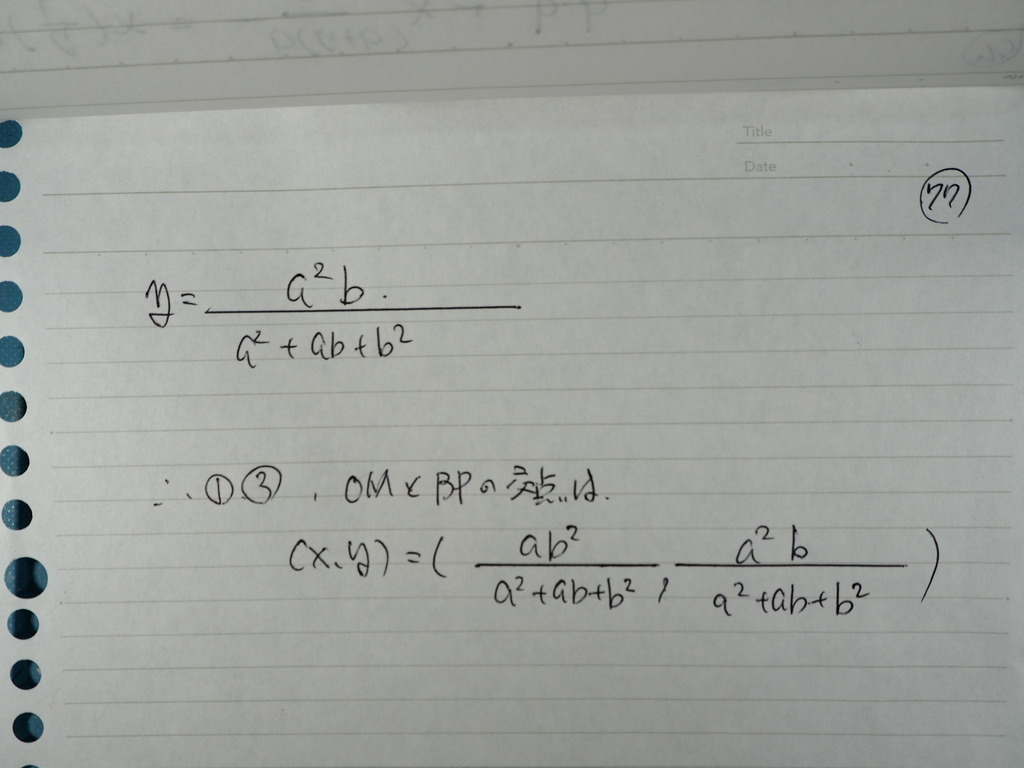 Title
Date
77
y = a²b / (a² + ab + b²)
∴ ①③, OMとBPの交点は.
(x, y) = ( ab² / (a² + ab + b²), a²b / (a² + ab + b²) )